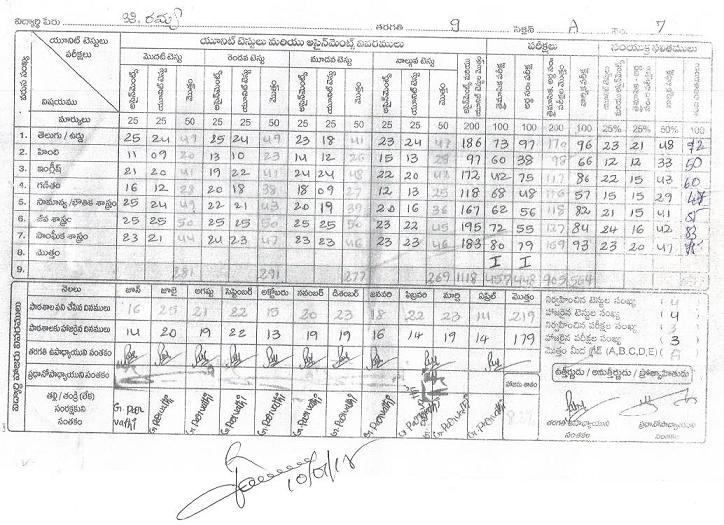 విద్యార్థి పేరు జి. రమ్య తరగతి 9 సెక్షన్ A 7
యూనిట్ టెస్టులు పరీక్షలు యూనిట్ టెస్టులు మరియు అసైన్‌మెంట్స్ వివరములు పరీక్షలు సంయుక్త ఫలితములు
మొదటి టెస్టు రెండవ టెస్టు మూడవ టెస్టు నాల్గవ టెస్టు
విషయము అసైన్‌మెంట్స్ యూనిట్ టెస్టు మొత్తం అసైన్‌మెంట్స్ యూనిట్ టెస్టు మొత్తం అసైన్‌మెంట్స్ యూనిట్ టెస్టు మొత్తం అసైన్‌మెంట్స్ యూనిట్ టెస్టు మొత్తం
మార్కులు 25 25 50 25 25 50 25 25 50 25 25 50 200 100 100 200 100 25% 25% 50% 100
1. తెలుగు / ఉర్దు 25 24 49 25 24 49 23 18 41 23 24 47 186 73 97 170 96 23 21 48 92
2. హింది 11 09 20 13 10 23 14 12 26 15 13 28 97 60 38 98 66 12 12 33 50
3. ఇంగ్లీష్ 21 20 41 19 22 41 24 24 48 22 20 42 172 42 75 117 86 22 15 43 60
4. గణితం 16 12 28 20 18 38 18 09 27 12 13 25 118 68 48 116 57 15 15 29
5. సామాన్య / భౌతిక శాస్త్రం 25 24 49 22 21 43 20 19 39 20 16 36 167 62 56 118 82 21 15 41
6. జీవ శాస్త్రం 25 25 50 25 25 50 25 25 50 23 22 45 195 72 55 127 84 24 16 42 83
7. సాంఘిక శాస్త్రం 23 21 44 24 23 47 23 23 46 23 23 46 183 80 79 159 93 23 20 47
8. మొత్తం I I
9. 281 291 277 269 1118 457 448 905 564
నెలలు జూన్ జూలై ఆగష్టు సెప్టెంబర్ అక్టోబరు నవంబర్ డిశంబర్ జనవరి ఫిబ్రవరి మార్చి ఏప్రిల్ మొత్తం
పాఠశాల పని చేసిన దినములు 16 25 21 22 15 20 23 18 22 23 14 219
పాఠశాలకు హాజరైన దినములు 14 20 19 22 13 19 19 16 14 19 14 179
తరగతి ఉపాధ్యాయుని సంతకం
ప్రధానోపాధ్యాయుని సంతకం హాజరు శాతం
తల్లి / తండ్రి (లేక) సంరక్షకుని సంతకం G. Parvathi G. Parvathi G. Parvathi G. Parvathi G. Parvathi G. Parvathi G. Parvathi G. Parvathi G. Parvathi G. Parvathi G. Parvathi
విద్యార్థి హాజరు వివరములు
నిర్వహించిన టెస్టుల సంఖ్య 4
హాజరైన టెస్టుల సంఖ్య 4
నిర్వహించిన పరీక్షల సంఖ్య 3
హాజరైన పరీక్షల సంఖ్య 3
మొత్తం మీద గ్రేడ్ (A,B,C,D,E)
ఉత్తీర్ణుడు / అనుత్తీర్ణుడు / ప్రోత్సాహితుడు
తరగతి ఉపాధ్యాయుని సంతకం ప్రధానోపాధ్యాయుని సంతకం